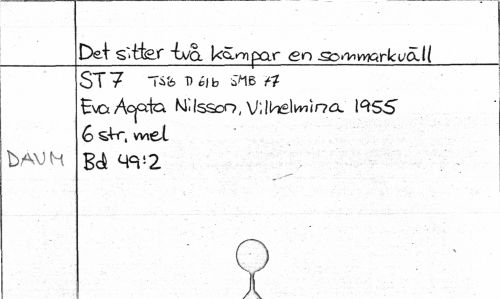 Det sitter två kämpar en sommarkväll
ST 7 TSB D 61b SMB 77
Eva Agata Nilsson, Vilhelmina 1955
6 str, mel
DAUM Bd 49:2